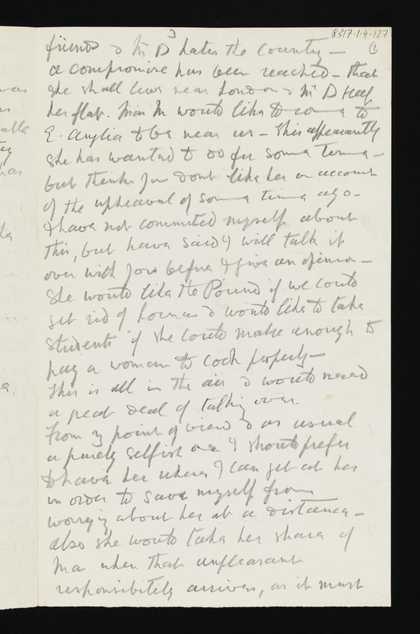 3
8317-1-4-127
friend & Mr D hates the County –
a compromise has been reached – that
she shall live near London & Mr D keep
her flat. Miss M would like to come to
E. Anglia to be near us – This apparently
she has wanted to do for some time –
but thinks you dont like her on account
of the upheaval of some time ago –
I have not committed myself about
this, but have said I will talk it
over with you before I give an opinion –
She would like the Pound if we could
get rid of & would like to take
students if she could make enough to
pay a woman to cook properly –
This is all in the air & would need
a great deal of talking over.
From my point of view & as usual
a purely selfish one I should prefer
to have her where I can get at her
in order to save myself from
worrying about her at a distance –
also she would take her share of
Ma when that unpleasant
responsibility arrives, as it must